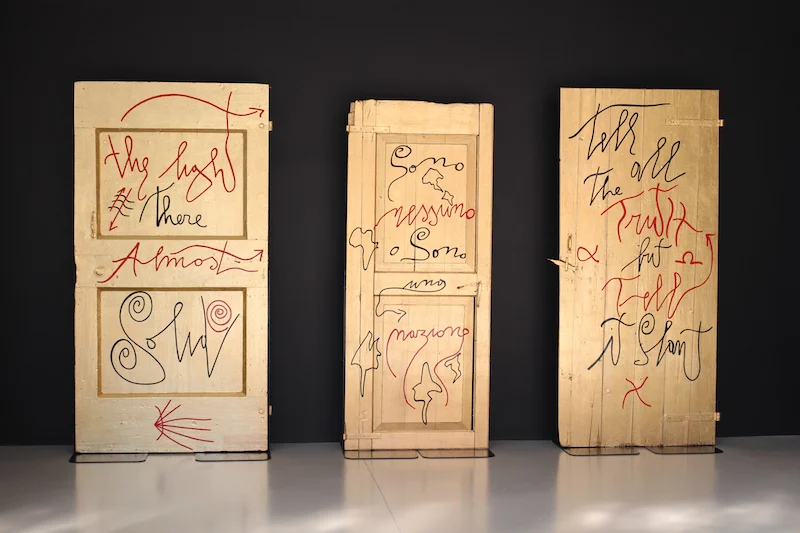 the light
there
Almost
Solid
Sono
nessuno
o Sono
una
nazione
Tell
all
the
Truth
α but Ω
Tell
it Slant